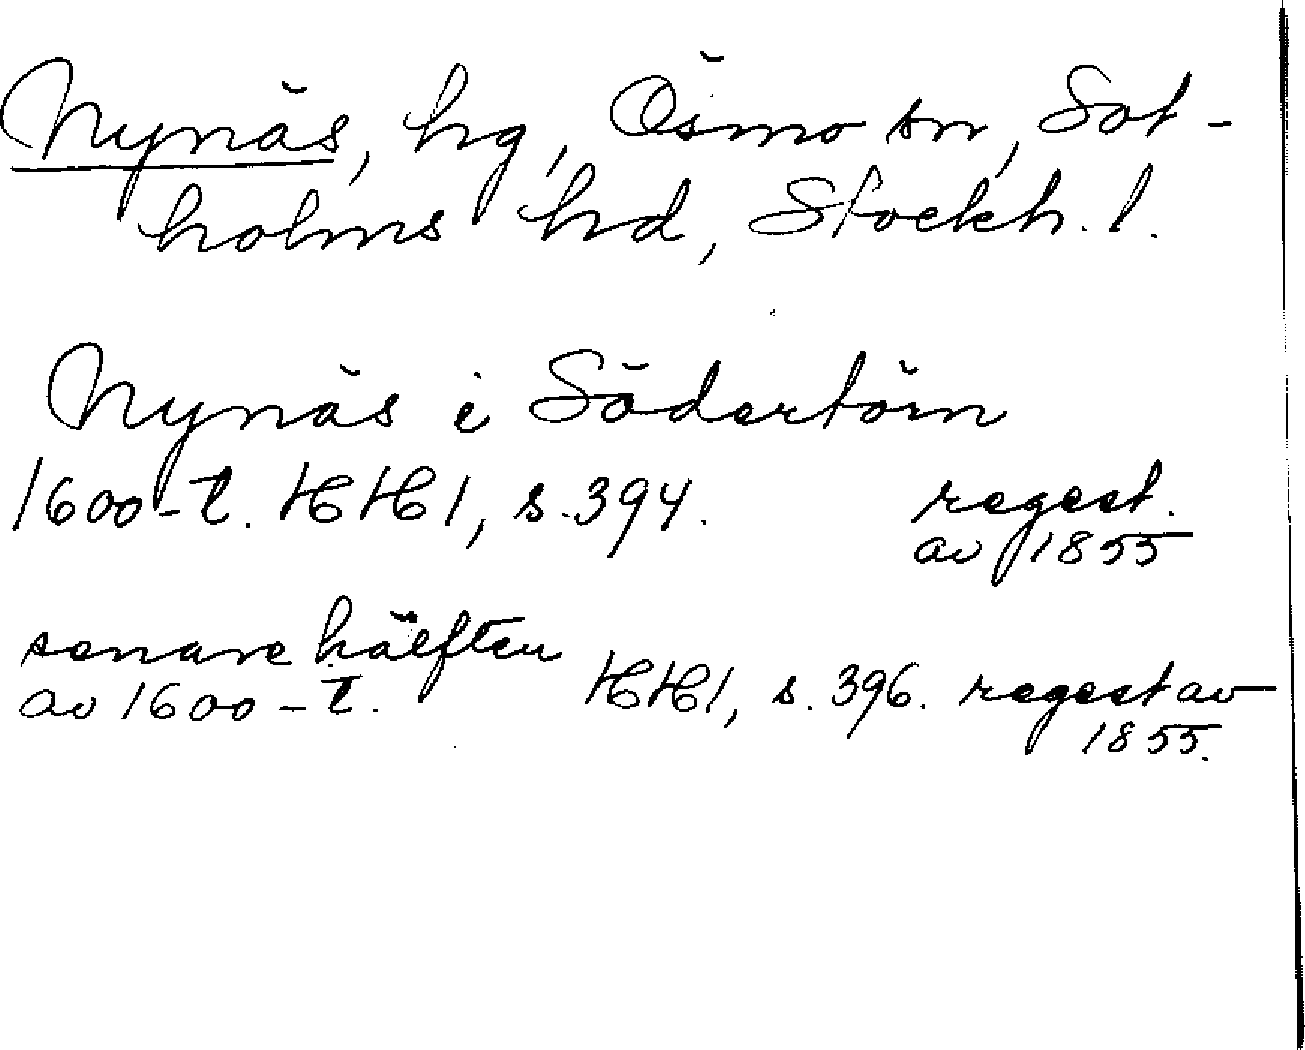 Nynäs, hg, Ösmo sn, Sot-
holms hd, Stockh. l.
Nynäs i Södertörn
1600-t. HH 1, s. 394. regest.
av 1855
senare hälften
av 1600-t. HH 1, s. 396. regest av
1855.